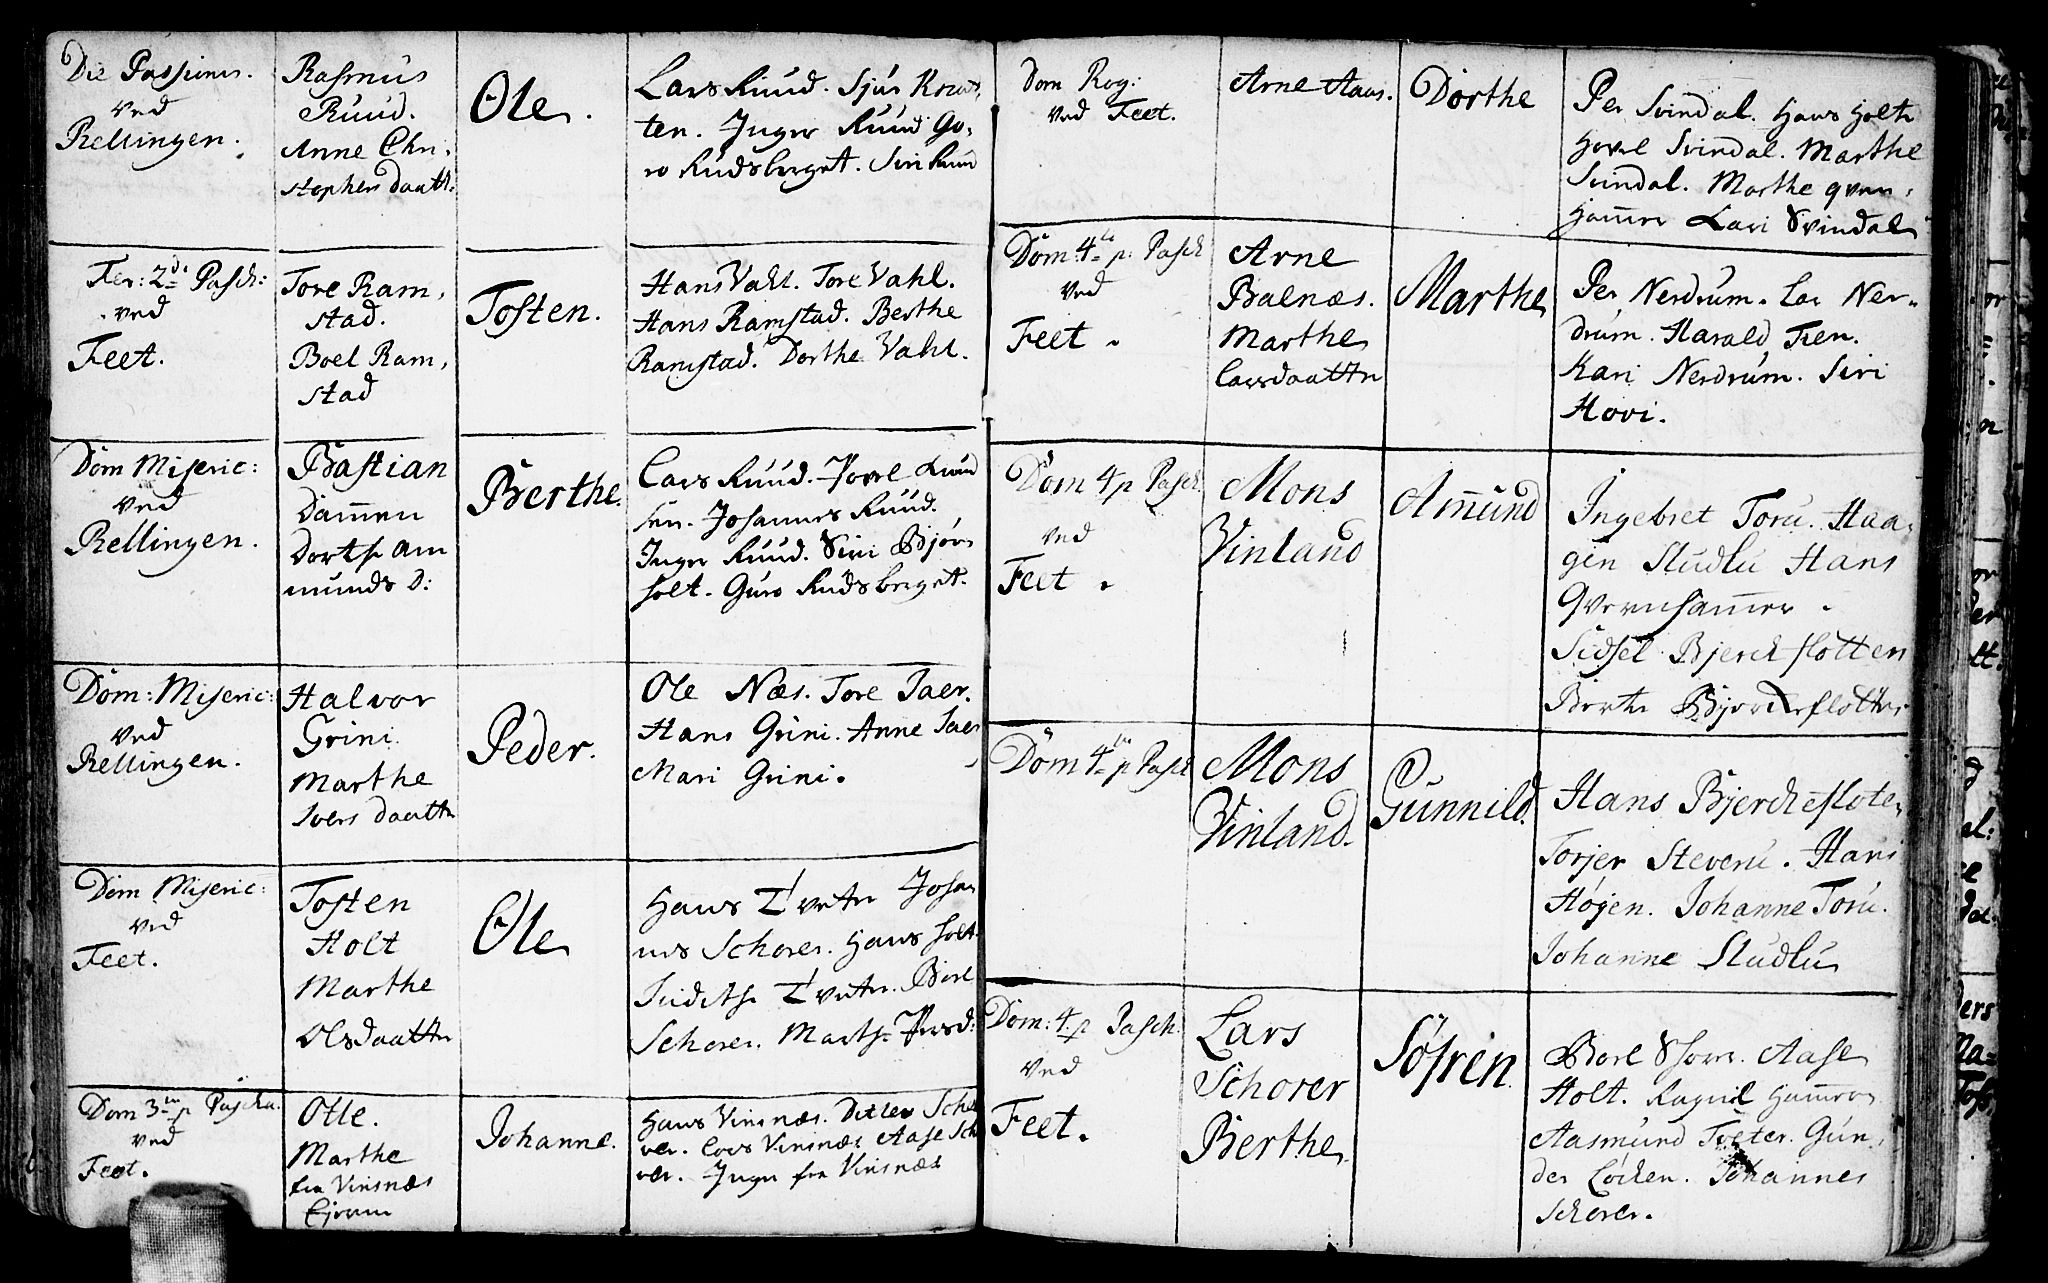 Die Passionis.
ved
Rellingen.
Rasmus
Ruud.
Anne Chri,
stophers daatt.
Ole.
Lars Ruud. Sjur
ten. Inger Ruud Go,
ro Rudsberget. Siri Ruud
Fer: 2d: Pasch:
ved
Feet.
Tore Ram,
stad.
Boel Ram,
stad
Tosten.
Hans Vahl. Tore Vahl.
Hans Ramstad. Berthe
Ramstad. Dorthe Vahl.
Dom Miseric:
ved
Rellingen.
Bastian
Dam̅en
Dorth Am
munds D:
Berthe.
Lars Ruud. Povel
sen. Johannes Ruud.
Inger Ruud. Siri Bjørn
holt. Guro Rudsberget.
Dom: Miseric:
ved
Rellingen.
Halvor
Grini.
Marthe
Ivers daattr
Peder.
Ole Næs. Tore Jaer.
Hans Grini. Anne Jaer
Mari Grini.
Dom Miseric:
ved
Feet.
Tosten
Holt
Marthe
Olsdaattr
Ole
Hans Tveter Johan
nes Schorer. Hans Holt.
Judith Tveter. Boel
Schorer. Marthe Persd:
Dom 3tia p Pascha.
ved
Feet.
Otte.
Marthe
fra Vinsnæs
Ejerne
Johanne.
Hans Vinsnæs. Ditlev Scho
rer. Lars Vinsnæs Aase Scho
rer. Inger fra Vinsnæs
Dom Rog:
ved Feet.
Arne Aas.
Dorthe
Per Svindal. Hans Holt
Hovel Svindal. Marthe
Svindal. Marthe qvern,
ham̅er Lari Svindal
Dom: 4ta p: Pasch
ved
Feet.
Arne
Balnæs.
Marthe
Larsdaattr
Marthe
Per Nerdrum. Lar Ner-
drum. Harald Tien.
Kari Nerdrum. Siri
Hovi.
Dom 4 p Pasch.
ved
Feet.
Mons
Vinland
Am̅und
Ingebret Toru. Haa,
gen Studlu Hans
Qvernham̅er.
Sidsel Bjerckeflotten
Berte Bjerckeflotten
Dom 4ta p Pasch
Mons
Vinland.
Gunnild.
Hans Bjerckeflote,
Torjer Steveru. Hans
Høgen. Johanne Toru.
Johanne Studlu
Dom: 4. p Pasch:
ved
Feet.
Lars
Schorer
Berthe
Søfren
Boel Schorer. Aase
Holt. Ragnil Ham̅eren
Aasmund Tveter. Gun,
der Løcken. Johannes
Schorer.